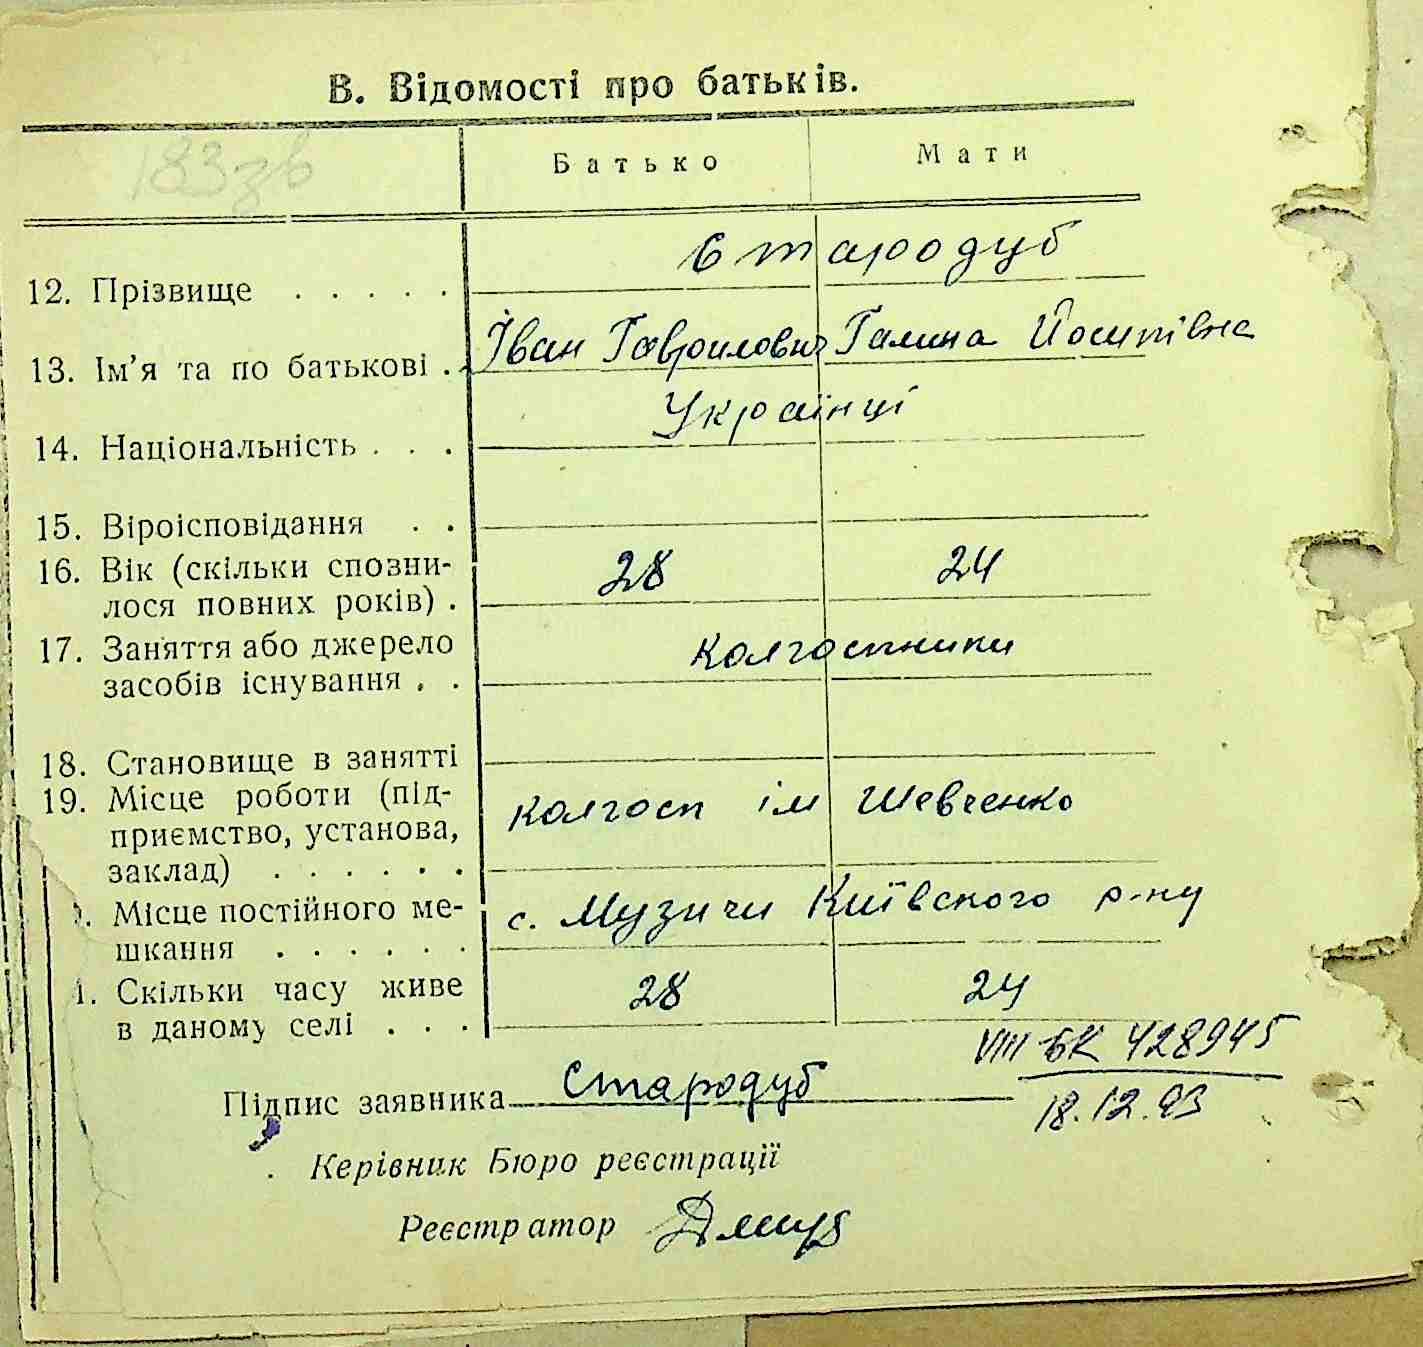 В. Відомості про батьків.
183зв
Батько Мати
Стародуб
12. Прізвище . . . . .
Іван Гаврилович Галина Йосипівна
13. Ім'я та по батькові .
Українці
14. Національність . . .
15. Віроісповідання . .
16. Вік (скільки сповни- 28 24
лося повних років) .
17. Заняття або джерело колгоспники
засобів існування . .
18. Становище в занятті
19. Місце роботи (під- колгосп ім Шевченко
приємство, установа,
заклад) . . . . . .
. Місце постійного ме- с. Музичи Київского р-ну
шкання . . . . . .
1. Скільки часу живе 28 24
в даному селі . . .
VIII БК 428945
Підпис заявника Стародуб
18.12.93
Керівник Бюро реєстрації
Реєстратор